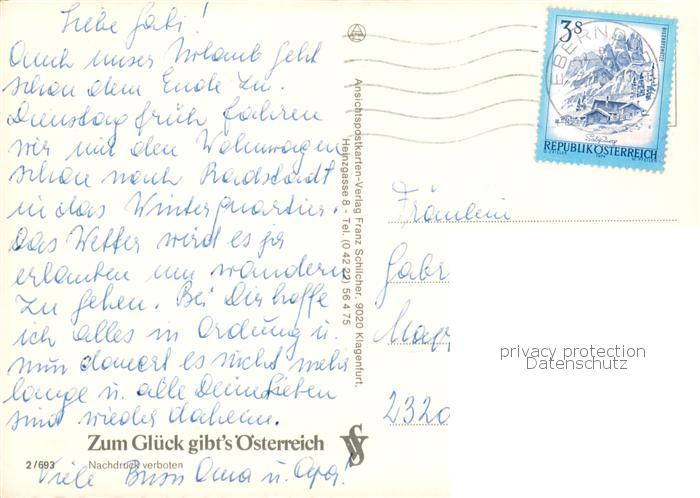 Liebe Gabi!
Auch unser Urlaub geht
schon dem Ende zu.
Dienstag früh fahren
wir mit den Wohnwagen
schon nach Radstadt
in das Winterquartier.
Das Wetter wird es ja
erlauben um wandern
zu gehen. Bei Dir hoffe
ich alles in Ordnung u.
nun dauert es nicht mehr
lange u. alle Deine Lieben
sind wieder daheim.
Zum Glück gibt's Österreich
2/693 Nachdruck verboten
Viele Bussi Oma u. Opa!
Ansichtspostkarten-Verlag Franz Schilcher, 9020 Klagenfurt,
Heinzgasse 8 - Tel. (0 42 22) 56 4 75
3S
REPUBLIK ÖSTERREICH
EBERND
Fräulein
Gabr
2320
privacy protection
Datenschutz